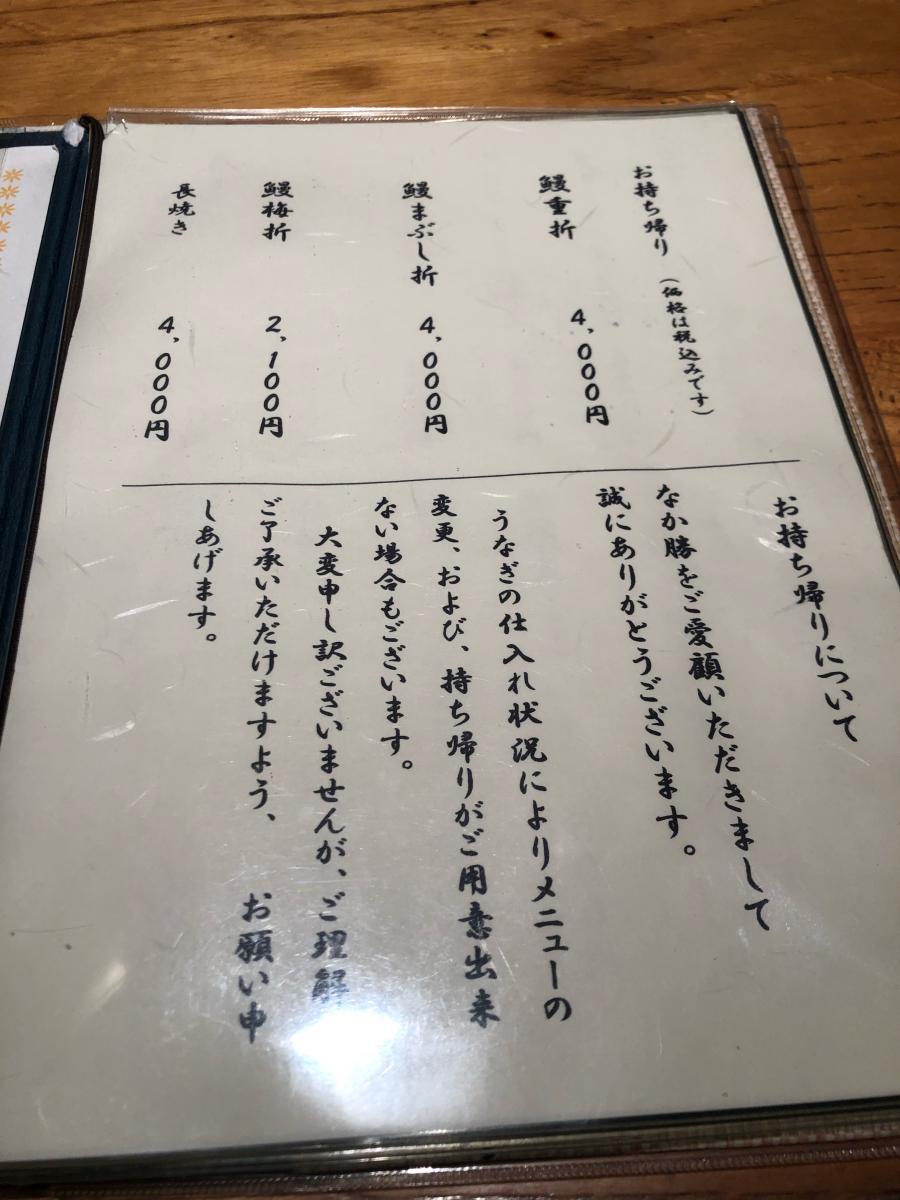 お持ち帰り (価格は税込みです)
鰻重折 4,000円
鰻まぶし折 4,000円
鰻梅折 2,100円
長焼き 4,000円
お持ち帰りについて
なか勝をご愛顧いただきまして
誠にありがとうございます。
うなぎの仕入れ状況によりメニューの
変更、および、持ち帰りがご用意出来
ない場合もございます。
大変申し訳ございませんが、ご理解
ご了承いただけますよう、 お願い申
しあげます。